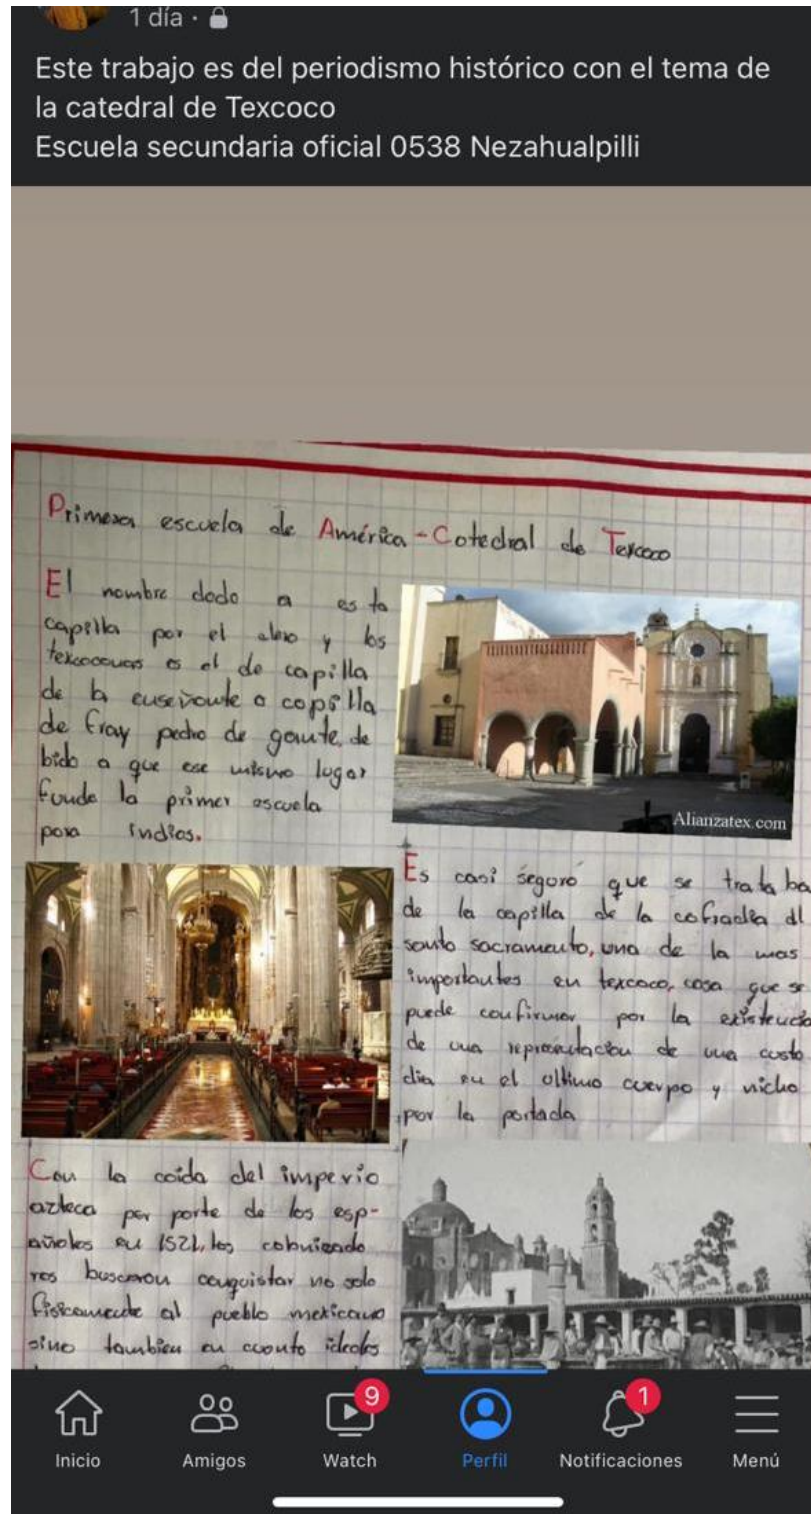 1 día ·
Este trabajo es del periodismo histórico con el tema de
la catedral de Texcoco
Escuela secundaria oficial 0538 Nezahualpilli
Primera escuela de América - Catedral de Texcoco
El nombre dado a esta
capilla por el clero y los
texcocanos es el de capilla
de la enseñante o capilla
de fray pedro de gante, de
bido a que ese mismo lugar
funde la primer escuela
para indios.
Alianzatex.com
Es casi seguro que se trataba
de la capilla de la cofradia dl
santo sacramento, una de la mas
importantes en texcoco, cosa que se
puede confirmar por la existencia
de una representacion de una custo
dia en el ultimo cuerpo y nicho
por la portada
Con la caida del imperio
azteca por parte de los esp-
añoles en 1521, los colonizado
res buscaron conquistar no solo
fisicamente al pueblo mexicano
sino tambien en cuanto ideales
9
1
Inicio
Amigos
Watch
Perfil
Notificaciones
Menú